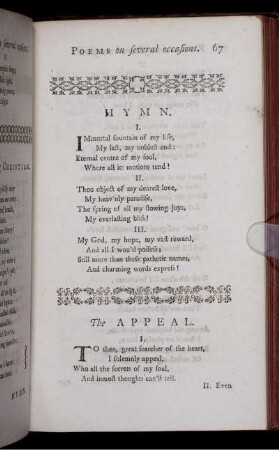 POEMS on several occasions. 67
HYMN.
I.
IMmortal fountain of my life,
My last, my noblest end;
Eternal centre of my soul,
Where all its motions tend!
II.
Thou object of my dearest love,
My heav'nly paradise,
The spring of all my flowing joys,
My everlasting bliss!
III.
My God, my hope, my vast reward,
And all I wou'd possess;
Still more than these pathetic names,
And charming words express!
The APPEAL.
I.
TO thee, great searcher of the heart,
I solemnly appeal,
Who all the secrets of my soul,
And inmost thoughts can'st tell.
II. Even